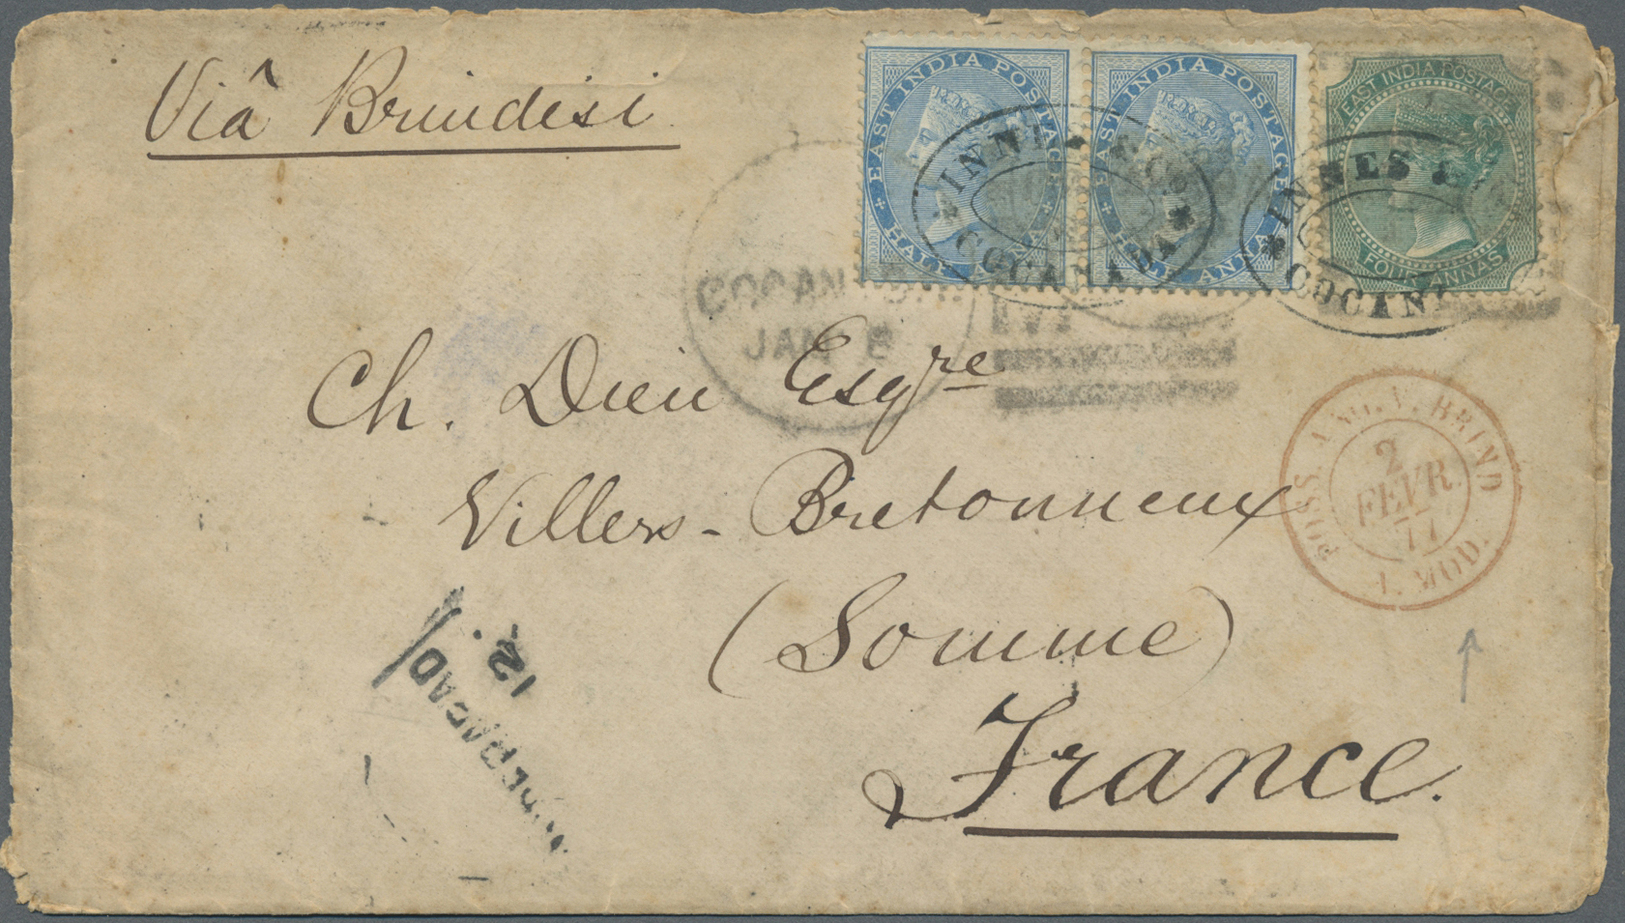 Viâ Brindisi
EAST INDIA POSTAGE
HALF ANNA
EAST INDIA POSTAGE
HALF ANNA
EAST INDIA POSTAGE
FOUR ANNAS
INNES & CO.
COCANADA
INNES &
COCANA
COCANADA
JAN 8
Ch. Dieu Esqre
Villers-Bretonneux
(Somme)
France.
POSS. ANG. V. BRIND
2
FEVR.
77
A. MOD.
12.